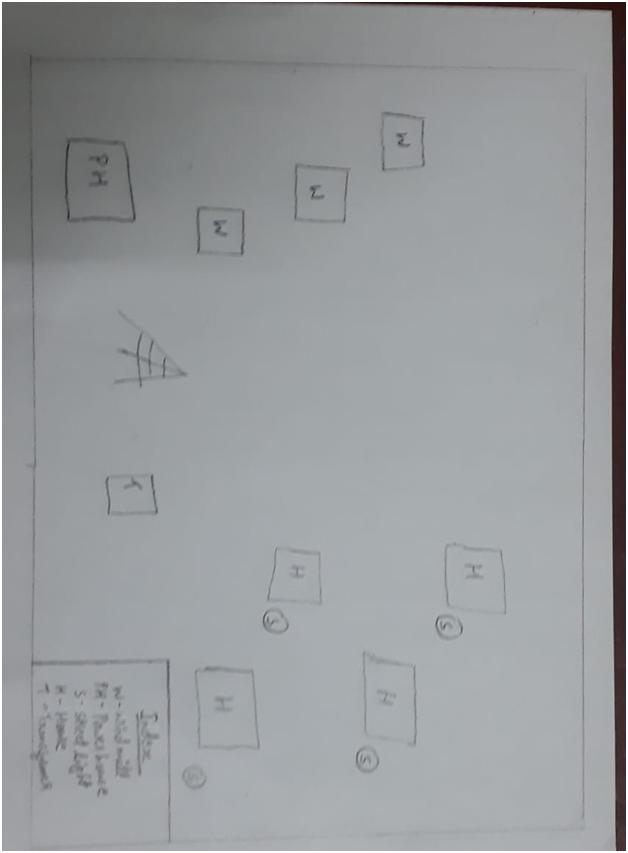 H
S
W
H
S
W
H
S
W
H
S
T
PH
Index
W - wind mill
PH - Power house
S - street light
H - Home
T - Transformer